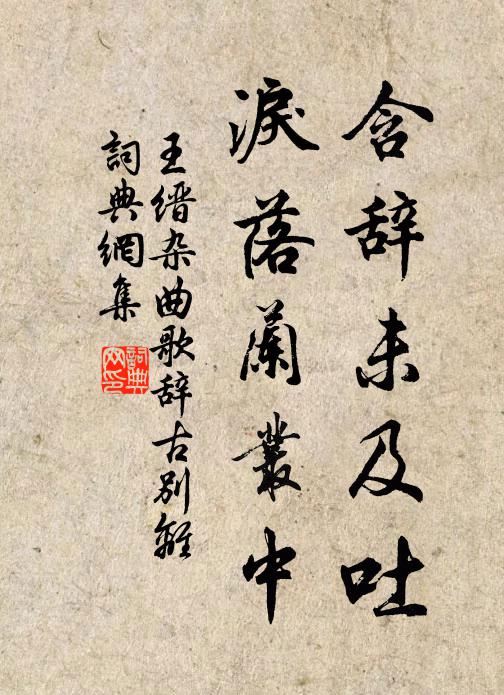 含辞未及吐
淚落蘭叢中
王缙杂曲歌辞古別離
詞典網集
詞典網印